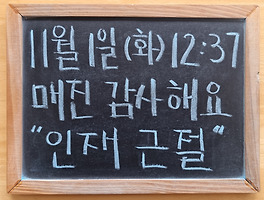 11월 1일 (화) 12:37
매진 감사해요
"인재 근절"